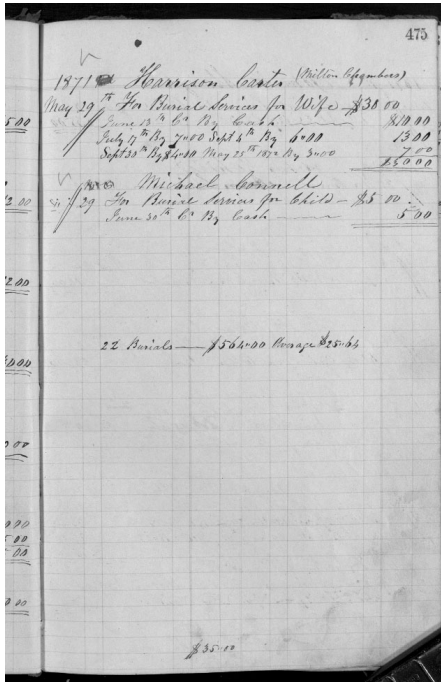 475
1871 Harrison Carter (Milton Chambers)
May 29th For Burial Services for Wife — $30 00
June 13th Cr By Cash — $10 00
July 17th By 7"00 Sept 4th By 6"00 13 00
Sept 30th By $4"00 May 25th 1872 By 3"00 7 00
$30 00
Michael Connell
29 For Burial Services for Child — $5 00
June 30th Cr By Cash — 5 00
22 Burials — $564"00 Average $25"64
$35"00
5 00
2 00
2 00
0 00
5 00